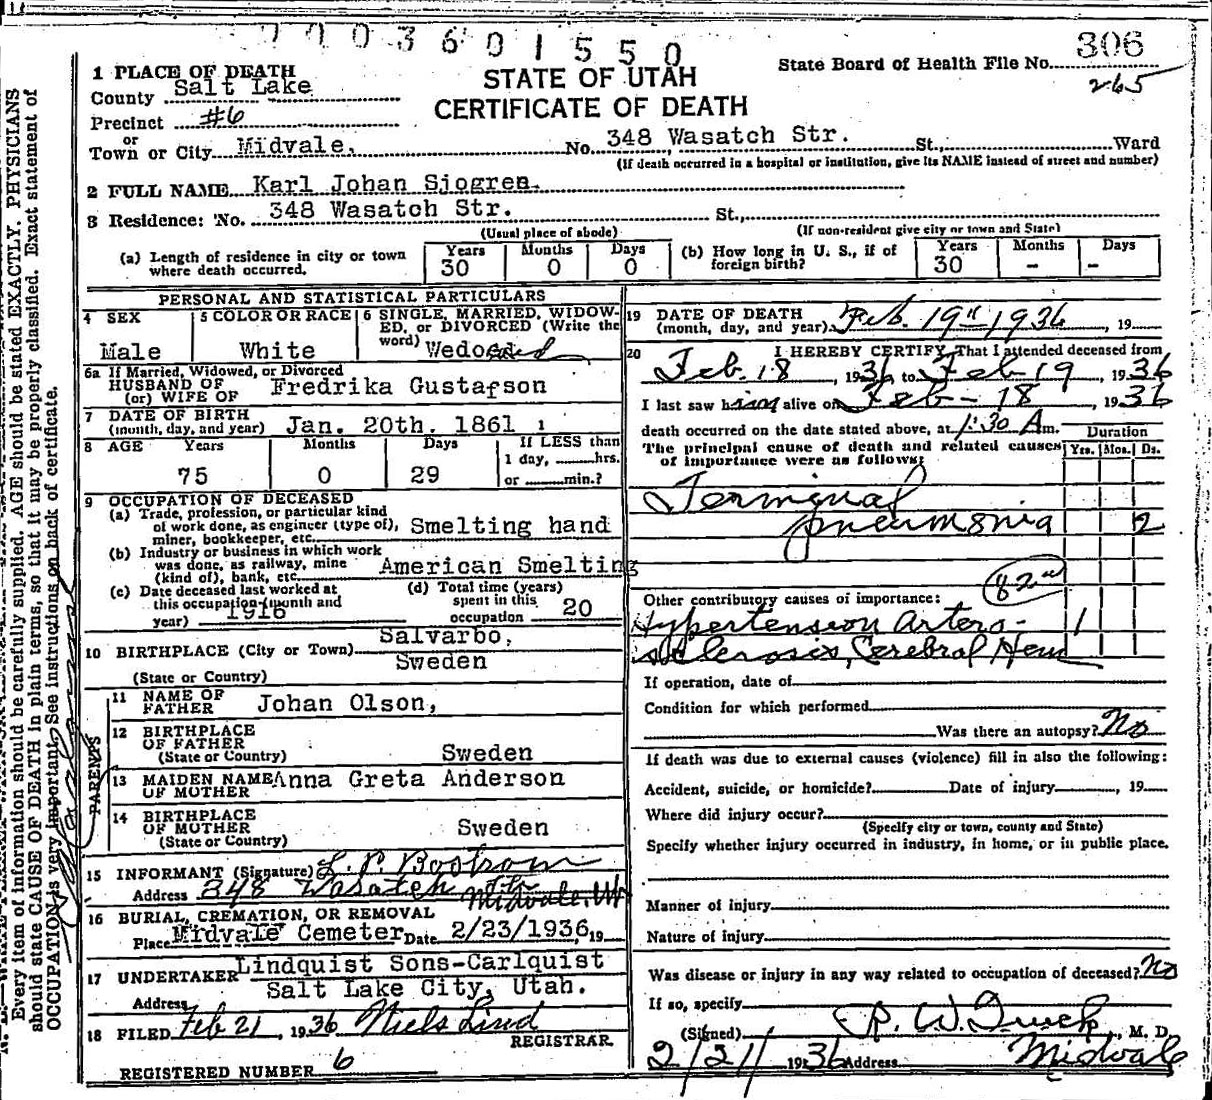 7 7 0 3 6 0 1 5 5 0
306
State Board of Health File No.
265
STATE OF UTAH
CERTIFICATE OF DEATH
1 PLACE OF DEATH
County Salt Lake
Precinct #6
or
Town or City Midvale, No. 348 Wasatch Str. St., Ward
(If death occurred in a hospital or institution, give its NAME instead of street and number)
2 FULL NAME Karl Johan Sjogren.
3 Residence: No. 348 Wasatch Str. St.,
(Usual place of abode) (If non-resident give city or town and State)
(a) Length of residence in city or town where death occurred. Years 30 Months 0 Days 0
(b) How long in U. S., if of foreign birth? Years 30 Months – Days –
PERSONAL AND STATISTICAL PARTICULARS
4 SEX
Male
5 COLOR OR RACE
White
6 SINGLE, MARRIED, WIDOWED, or DIVORCED (Write the word) Wedo
6a If Married, Widowed, or Divorced
HUSBAND OF
(or) WIFE OF Fredrika Gustafson
7 DATE OF BIRTH
(month, day, and year) Jan. 20th. 1861
8 AGE Years 75 Months 0 Days 29
If LESS than
1 day, hrs.
or min.?
9 OCCUPATION OF DECEASED
(a) Trade, profession, or particular kind
of work done, as engineer (type of),
miner, bookkeeper, etc. Smelting hand
(b) Industry or business in which work
was done, as railway, mine
(kind of), bank, etc. American Smelting
(c) Date deceased last worked at
this occupation (month and
year) 1916
(d) Total time (years)
spent in this
occupation 20
10 BIRTHPLACE (City or Town) Salvarbo,
Sweden
(State or Country)
PARENTS
11 NAME OF
FATHER Johan Olson,
12 BIRTHPLACE
OF FATHER
(State or Country) Sweden
13 MAIDEN NAME
OF MOTHER Anna Greta Anderson
14 BIRTHPLACE
OF MOTHER
(State or Country) Sweden
15 INFORMANT (Signature) L. P. Bostrom
Address 348 Wasatch Str Midvale, Ut
16 BURIAL, CREMATION, OR REMOVAL
Place Midvale Cemeter Date 2/23/1936, 19
17 UNDERTAKER Lindquist Sons-Carlquist
Address Salt Lake City, Utah.
18 FILED Feb 21, 1936 Niels Lind
REGISTRAR
REGISTERED NUMBER 6
19 DATE OF DEATH
(month, day, and year) Feb. 19th 1936, 19
20 I HEREBY CERTIFY, That I attended deceased from
Feb. 18, 1936, to Feb 19, 1936
I last saw him alive on Feb – 18, 1936
death occurred on the date stated above, at 1:30 A m.
The principal cause of death and related causes
of importance were as follows:
Duration
Yrs. Mos. Ds.
Terminal
pneumonia 2
82a
Other contributory causes of importance:
Hypertension Artero- 1
sclerosis, Cerebral Hem
If operation, date of
Condition for which performed
Was there an autopsy? No
If death was due to external causes (violence) fill in also the following:
Accident, suicide, or homicide? Date of injury, 19
Where did injury occur?
(Specify city or town, county and State)
Specify whether injury occurred in industry, in home, or in public place.
Manner of injury
Nature of injury
Was disease or injury in any way related to occupation of deceased? No
If so, specify
(Signed) , M. D.
2/21/ 1936 Address Midvale
Every item of information should be carefully supplied. AGE should be stated EXACTLY. PHYSICIANS
should state CAUSE OF DEATH in plain terms, so that it may be properly classified. Exact statement of
OCCUPATION is very important. See instructions on back of certificate.